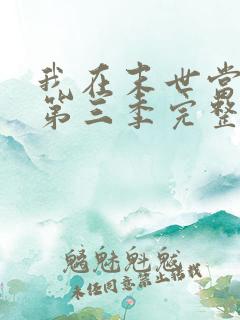 我在末世当
第三季完整
魑魅魁魃
未经同意禁止转载